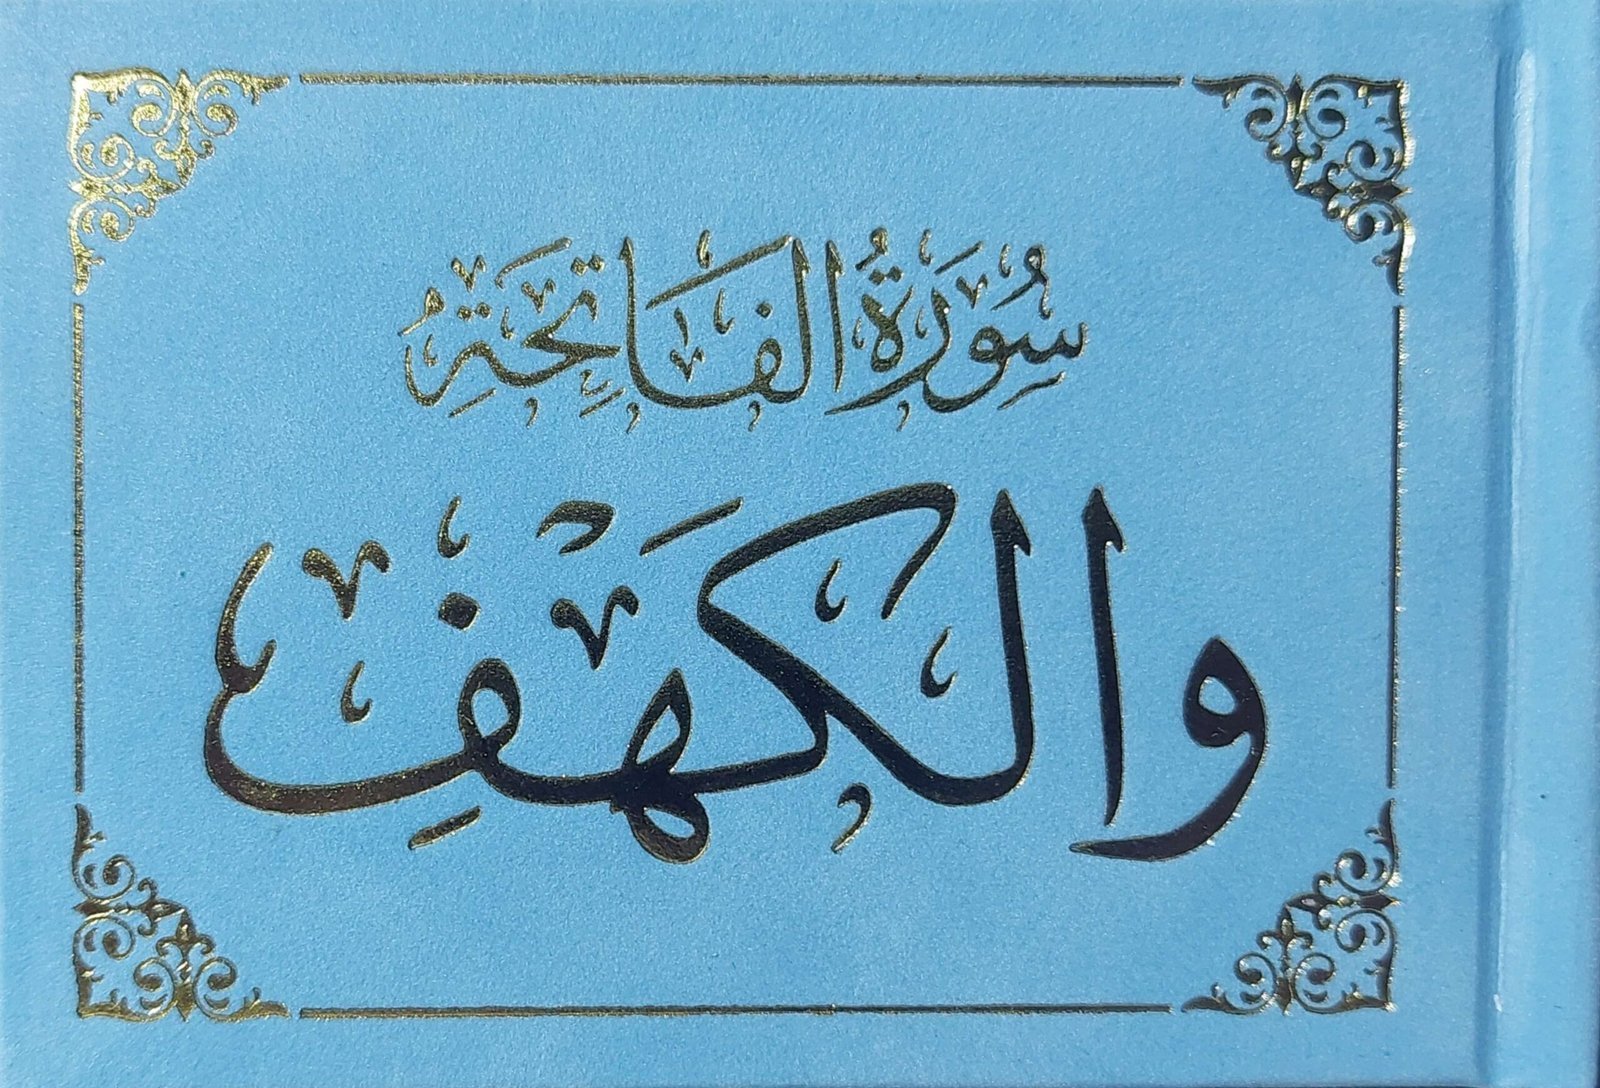 سُورَةُ الفَاتِحَةِ
وَالكَهْفِ